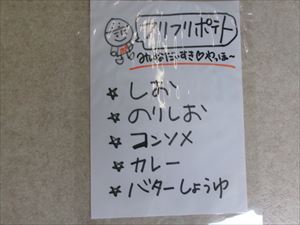 フリフリポテト
みんなだいすき♡やっほ〜
☆ しお
☆ のりしお
☆ コンソメ
☆ カレー
☆ バターしょうゆ